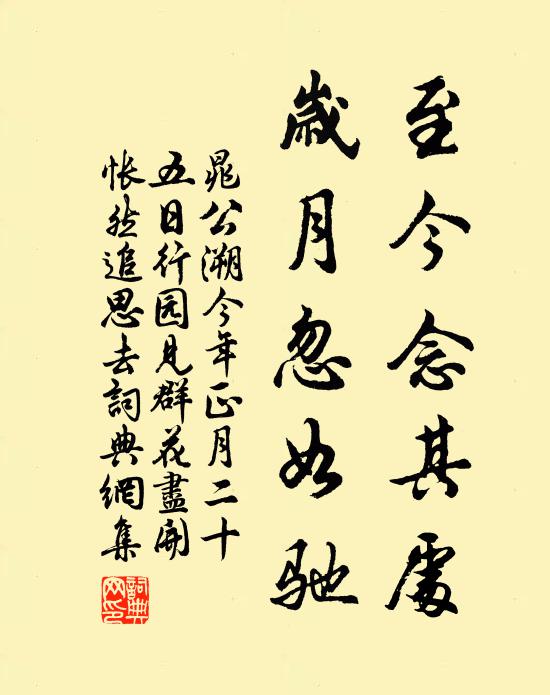 至今念其處
歲月忽如馳
晁公溯今年正月二十
五日行园見群花盡開
怅然追思去詞典網集
詞典網印